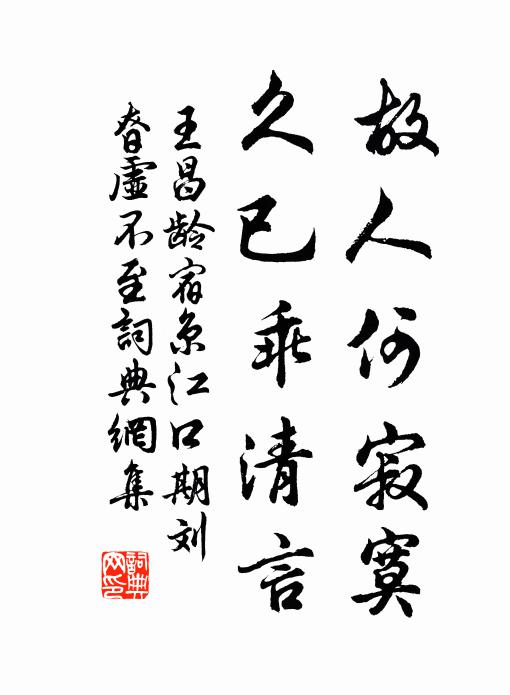 故人何寂寞
久已乖清言
王昌龄宿京江口期刘
眘虚不至詞典網集
詞典网印